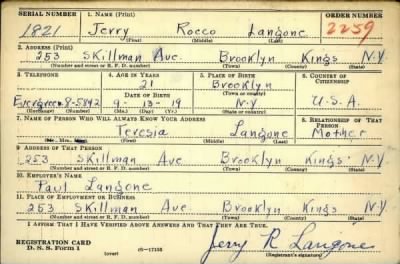 SERIAL NUMBER 1. NAME (Print) ORDER NUMBER
1821 Jerry Rocco Langone 2259
(First) (Middle) (Last)
2. ADDRESS (Print)
253 Skillman Ave. Brooklyn Kings N.Y.
(Number and street or R. F. D. number) (Town) (County) (State)
3. TELEPHONE 4. AGE IN YEARS 5. PLACE OF BIRTH 6. COUNTRY OF CITIZENSHIP
21 Brooklyn
Evergreen 8-5842 DATE OF BIRTH (Town or county)
9- 13- 19 N.Y. U.S.A.
(Exchange) (Number) (Mo.) (Day) (Yr.) (State or country)
7. NAME OF PERSON WHO WILL ALWAYS KNOW YOUR ADDRESS 8. RELATIONSHIP OF THAT PERSON
Teresia Langone Mother
(Mr., Mrs., Miss) (First) (Middle) (Last)
9. ADDRESS OF THAT PERSON
253 Skillman Ave Brooklyn Kings N.Y.
(Number and street or R. F. D. number) (Town) (County) (State)
10. EMPLOYER'S NAME
Paul Langone
11. PLACE OF EMPLOYMENT OR BUSINESS
253 Skillman Ave Brooklyn Kings N.Y.
(Number and street or R. F. D. number) (Town) (County) (State)
I AFFIRM THAT I HAVE VERIFIED ABOVE ANSWERS AND THAT THEY ARE TRUE.
REGISTRATION CARD
D. S. S. Form 1 (over) 16-17105 Jerry R Langone
(Registrant's signature)